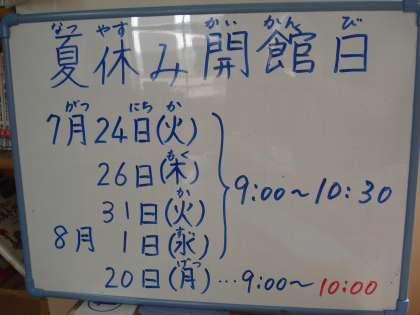 なつ やす かい かん び
夏休み開館日
がつ にち か
7月24日(火)
もく
26日(木)
か
31日(火)
9:00～10:30
すい
8月 1日(水)
げつ
20日(月)…9:00～10:00